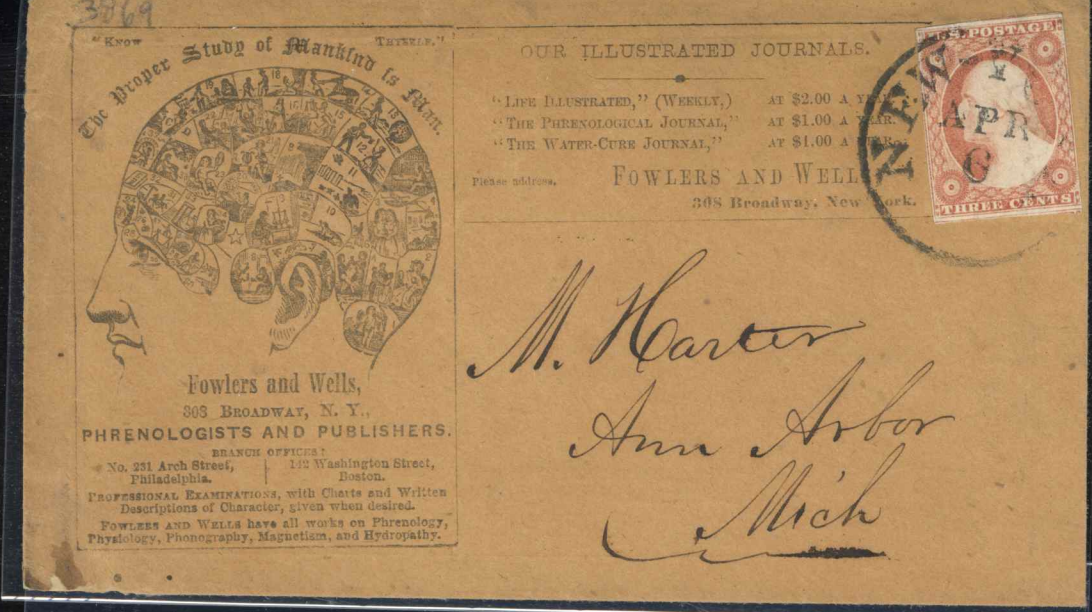 3869
"Know Thyself."
The Proper Study of Mankind is Man.
Fowlers and Wells,
308 Broadway, N. Y.,
PHRENOLOGISTS AND PUBLISHERS.
BRANCH OFFICES:
No. 231 Arch Street,
Philadelphia.
142 Washington Street,
Boston.
Professional Examinations, with Charts and Written
Descriptions of Character, given when desired.
Fowlers and Wells have all works on Phrenology,
Physiology, Phonography, Magnetism, and Hydropathy.
OUR ILLUSTRATED JOURNALS.
"Life Illustrated," (Weekly,) at $2.00 a year.
"The Phrenological Journal," at $1.00 a year.
"The Water-Cure Journal," at $1.00 a year.
Please address, Fowlers and Wells
308 Broadway, New York.
U.S. POSTAGE
THREE CENTS
NEW-Y
APR
6
M. Harter
Ann Arbor
Mich